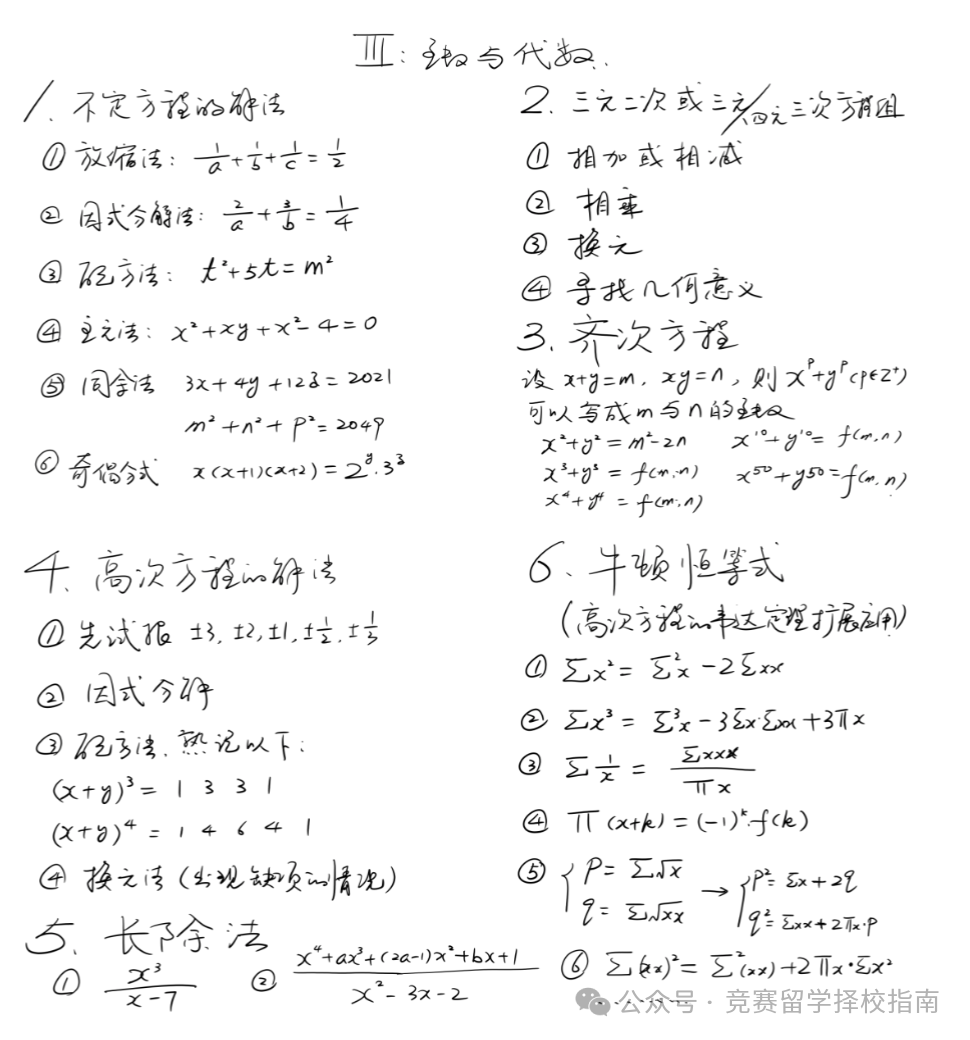 III: 函数与代数.
1. 不定方程的解法
① 放缩法: 1/a + 1/b + 1/c = 1/2
② 因式分解法: 2/a + 3/b = 1/4
③ 配方法: t²+5t=m²
④ 主元法: x²+xy+x²-4=0
⑤ 同余法 3x+4y+12z=2021
m²+n²+p²=2049
⑥ 奇偶分式 x(x+1)(x+2)=2^y·3^z
2. 三元二次或三元/四元三次方程组
① 相加或相减
② 相乘
③ 换元
④ 寻找几何意义
3. 齐次方程
设 x+y=m, xy=n, 则 x^p+y^p (p∈Z⁺)
可以写成m与n的函数
x²+y²=m²-2n x¹⁰+y¹⁰=f(m,n)
x³+y³=f(m,n) x⁵⁰+y50=f(m,n)
x⁴+y⁴=f(m,n)
4. 高次方程的解法
① 先试根 ±3, ±2, ±1, ±1/2, ±1/3
② 因式分解
③ 配方法, 熟记以下:
(x+y)³= 1 3 3 1
(x+y)⁴= 1 4 6 4 1
④ 换元法(出现缺项的情况)
5. 长除法
① x³/(x-7) ② (x⁴+ax³+(2a-1)x²+bx+1)/(x²-3x-2)
6. 牛顿恒等式
(高次方程的韦达定理扩展应用)
① Σx²=Σ²x-2Σxx
② Σx³=Σ³x-3Σx·Σxx+3πx
③ Σ1/x=Σxxx/πx
④ π(x+k)=(-1)^k·f(k)
⑤ { p=Σ√x q=Σ√xx → { p²=Σx+2q q²=Σxx+2πx·p
⑥ Σ(xx)²=Σ²(xx)+2πx·Σx²
公众号·竞赛留学择校指南